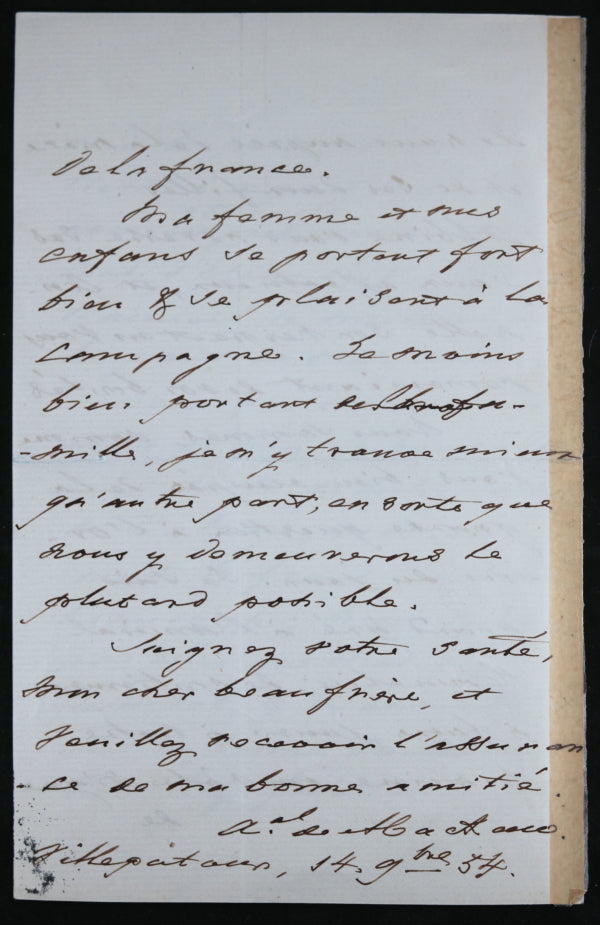 de la france.
Ma femme et mes
enfans se portent fort
bien & se plaisent à la
Campagne. Le moins
bien portant de la fa-
-mille, je m'y trouve mieux
qu'autre part, en sorte que
nous y demeurerons le
plutard possible.
Soignez votre santé,
mon cher beaufrère, et
veuillez recevoir l'assuran
-ce de ma bonne amitié.
A.al de Mackau.
Villepatour, 14 9bre 54.